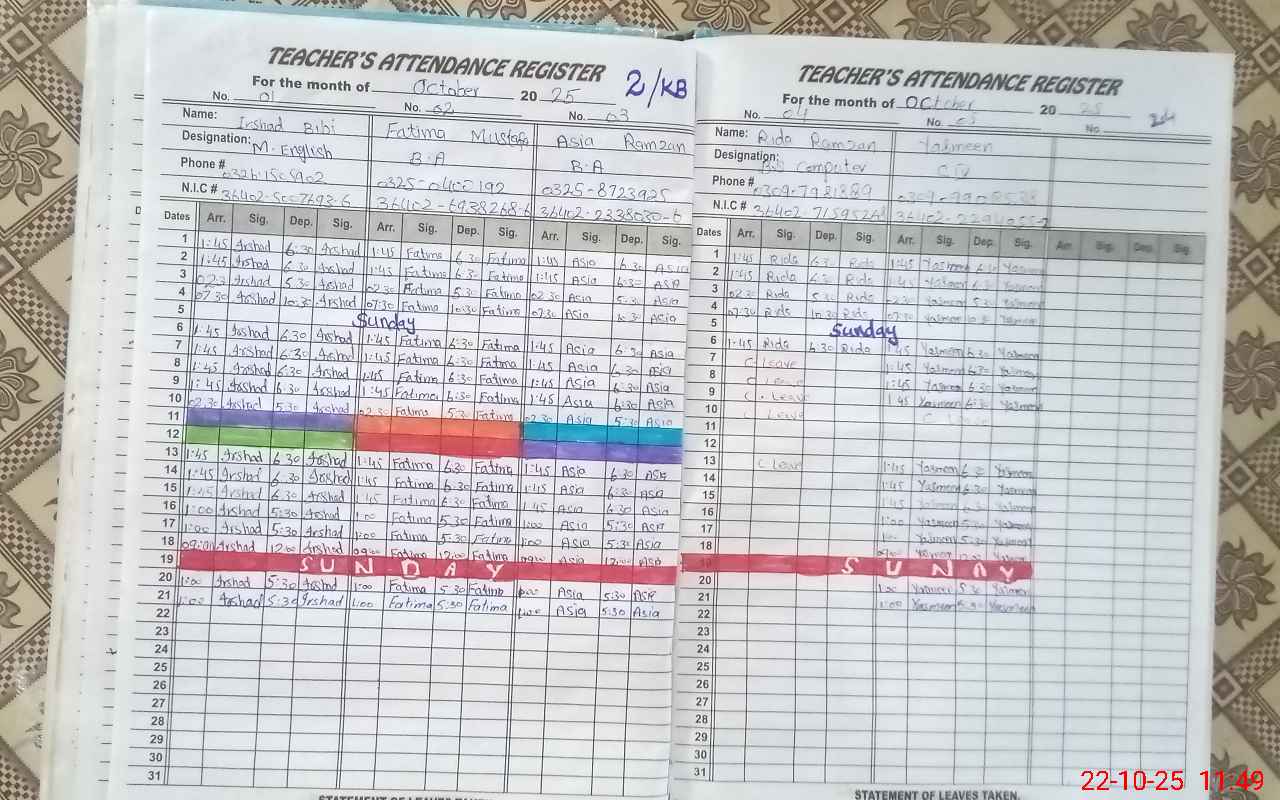 TEACHER'S ATTENDANCE REGISTER
2/KB
For the month of October 20 25
No. 01 No. 02 No. 03
Name: Irshad Bibi Fatima Mustafa Asia Ramzan
Designation: M. English B.A B.A
Phone # 0325-8723925
N.I.C #
Dates Arr. Sig. Dep. Sig. Arr. Sig. Dep. Sig. Arr. Sig. Dep. Sig.
1 1:45 Irshad 6:30 Irshad 1:45 Fatima 6:30 Fatima 1:45 Asia 6:30 Asia
2 1:45 Irshad 6:30 Irshad 1:45 Fatima 6:30 Fatima 1:45 Asia 6:30 Asia
3 Irshad 5:30 Irshad 02:30 Fatima 5:30 Fatima 02:30 Asia 5:30 Asia
4 07:30 Irshad 10:30 Irshad 07:30 Fatima 10:30 Fatima 07:30 Asia 10:30 Asia
5 Sunday
6 1:45 Irshad 6:30 Irshad 1:45 Fatima 6:30 Fatima 1:45 Asia 6:30 Asia
7 1:45 Irshad 6:30 Irshad 1:45 Fatima 6:30 Fatima 1:45 Asia 6:30 Asia
8 1:45 Irshad 6:30 Irshad 1:45 Fatima 6:30 Fatima 1:45 Asia 6:30 Asia
9 1:45 Irshad 6:30 Irshad 1:45 Fatima 6:30 Fatima 1:45 Asia 6:30 Asia
10 02:30 Irshad 5:30 Irshad 02:30 Fatima 5:30 Fatima 02:30 Asia 5:30 Asia
11
12
13 1:45 Irshad 6:30 Irshad 1:45 Fatima 6:30 Fatima 1:45 Asia 6:30 Asia
14 1:45 Irshad 6:30 Irshad 1:45 Fatima 6:30 Fatima 1:45 Asia 6:30 Asia
15 1:45 Irshad 6:30 Irshad 1:45 Fatima 6:30 Fatima 1:45 Asia 6:30 Asia
16 1:00 Irshad 5:30 Irshad 1:00 Fatima 5:30 Fatima 1:00 Asia 5:30 Asia
17 1:00 Irshad 5:30 Irshad 1:00 Fatima 5:30 Fatima 1:00 Asia 5:30 Asia
18 09:00 Irshad 12:00 Irshad 09:00 Fatima 12:00 Fatima 09:00 Asia 12:00 Asia
19 SUNDAY
20 1:00 Irshad 5:30 Irshad 1:00 Fatima 5:30 Fatima 1:00 Asia 5:30 Asia
21 1:00 Irshad 5:30 Irshad 1:00 Fatima 5:30 Fatima 1:00 Asia 5:30 Asia
22
23
24
25
26
27
28
29
30
31
TEACHER'S ATTENDANCE REGISTER
For the month of October 20 25
No. 04 No. No.
Name: Rida Ramzan Yasmeen
Designation: Computer
Phone #
N.I.C #
Dates Arr. Sig. Dep. Sig. Arr. Sig. Dep. Sig. Arr. Sig. Dep. Sig.
1 1:45 Rida 6:30 Rida 1:45 Yasmeen 6:30 Yasmeen
2 1:45 Rida 6:30 Rida 1:45 Yasmeen 6:30 Yasmeen
3 02:30 Rida 5:30 Rida 02:30 Yasmeen 5:30 Yasmeen
4 07:30 Rida 10:30 Rida 07:30 Yasmeen 10:30 Yasmeen
5 Sunday
6 1:45 Rida 6:30 Rida 1:45 Yasmeen 6:30 Yasmeen
7 C. Leave 1:45 Yasmeen 6:30 Yasmeen
8 C. Leave 1:45 Yasmeen 6:30 Yasmeen
9 C. Leave 1:45 Yasmeen 6:30 Yasmeen
10 C. Leave C. Leave
11
12
13 C Leave 1:45 Yasmeen 6:30 Yasmeen
14 1:45 Yasmeen 6:30 Yasmeen
15 1:45 Yasmeen 6:30 Yasmeen
16 1:00 Yasmeen 5:30 Yasmeen
17 1:00 Yasmeen 5:30 Yasmeen
18 09:00 Yasmeen 12:00 Yasmeen
19 SUNAY
20 1:00 Yasmeen Yasmeen
21 1:00 Yasmeen 5:30 Yasmeen
22
23
24
25
26
27
28
29
30
31
STATEMENT OF LEAVES TAKEN.
22-10-25 11:49